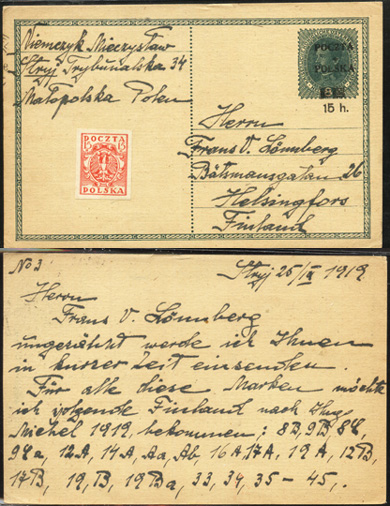 Niemczyk Mieczysław
Stryj Trybunalska 34
Małopolska Polen
POCZTA
POLSKA
15 h.
POCZTA
15 15
POLSKA
Herrn
Frans V. Lönnberg
Båtsmansgatan 26
Helsingfors
Finland
No 3
Stryj 25/IX 1919
Herrn
Frans V. Lönnberg
ungezähnt werde ich Ihnen
in kurzer Zeit einsenden.
Für alle diese Marken möchte
ich folgende Finland nach
Michel 1919, bekommen: 8B, 9B,
12A, 14A, Aa, Ab, 16A 17A, 19A, 12B,
17B, 19, B, 19Ba, 33, 34, 35 - 45,.